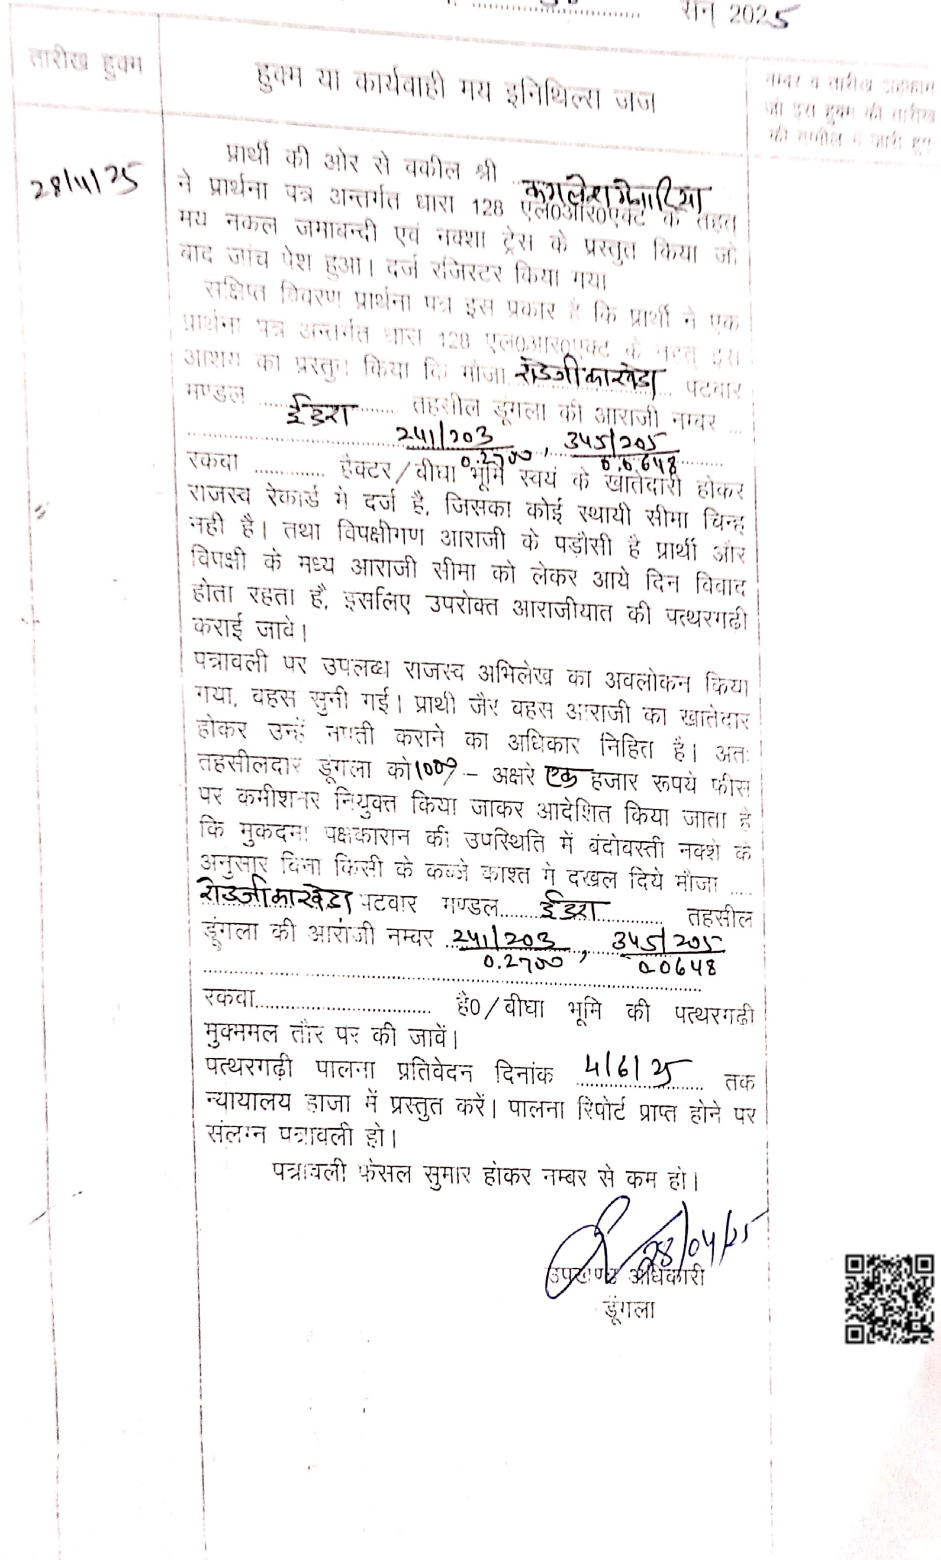 सन् 2025
तारीख हुक्म
हुक्म या कार्यवाही मय इनिथिल्स जज
नम्बर व तारीख अहकाम
जो इस हुक्म की तारीख
की तामील में जारी हुए
28/4/25
प्रार्थी की ओर से वकील श्री कमलेश मेनारिया
ने प्रार्थना पत्र अन्तर्गत धारा 128 एल0आर0एक्ट के तहत
मय नकल जमाबन्दी एवं नक्शा ट्रेस के प्रस्तुत किया जो
बाद जांच पेश हुआ। दर्ज रजिस्टर किया गया।
संक्षिप्त विवरण प्रार्थना पत्र इस प्रकार है कि प्रार्थी ने एक
प्रार्थना पत्र अन्तर्गत धारा 128 एल0आर0एक्ट के तहत इस
आशय का प्रस्तुत किया कि मौजा रोडजी का खेडा पटवार
मण्डल ईडरा तहसील डूंगला की आराजी नम्बर ...
241/203 , 345/205
0.2700 0.0648
रकवा ............. हैक्टर/बीघा भूमि स्वयं के खातेदारी होकर
राजस्व रेकार्ड में दर्ज है, जिसका कोई स्थायी सीमा चिन्ह
नही है। तथा विपक्षीगण आराजी के पड़ौसी है प्रार्थी और
विपक्षी के मध्य आराजी सीमा को लेकर आये दिन विवाद
होता रहता है, इसलिए उपरोक्त आराजीयात की पत्थरगढी
कराई जावे।
पत्रावली पर उपलब्ध राजस्व अभिलेख का अवलोकन किया
गया, वहस सुनी गई। प्राथी जैर वहस आराजी का खातेदार
होकर उन्हें नपती कराने का अधिकार निहित है। अतः
तहसीलदार डूंगला को 1000/- अक्षरे एक हजार रूपये फीस
पर कमीशनर नियुक्त किया जाकर आदेशित किया जाता है
कि मुकदमा पक्षकारान की उपस्थिति में बंदोवस्ती नक्शे के
अनुसार बिना किसी के कब्जे काश्त में दखल दिये मौजा ....
रोडजी का खेडा पटवार मण्डल....... ईडरा ............ तहसील
डूंगला की आराजी नम्बर 241/203 , 345/205
0.2700 0.0648
रकवा............................... है0/बीघा भूमि की पत्थरगढी
मुक्ममल तौर पर की जावें।
पत्थरगढ़ी पालना प्रतिवेदन दिनांक 4/6/25 तक
न्यायालय हाजा में प्रस्तुत करें। पालना रिपोर्ट प्राप्त होने पर
संलग्न पत्रावली हो।
पत्रावली फैसल सुमार होकर नम्बर से कम हो।
28/04/25
उपखण्ड अधिकारी
डूंगला